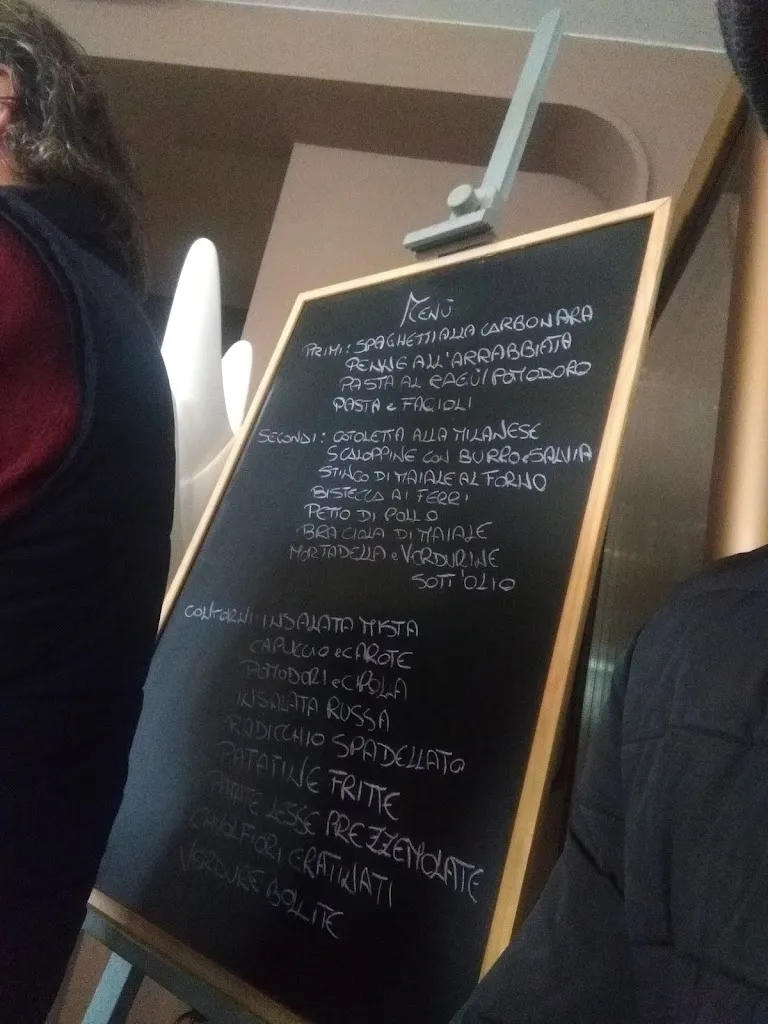 MENÙ
PRIMI: SPAGHETTI ALLA CARBONARA
PENNE ALL'ARRABBIATA
PASTA AL RAGÙ/POMODORO
PASTA e FAGIOLI
SECONDI: COTOLETTA ALLA MILANESE
SCALOPPINE CON BURRO e SALVIA
STINCO DI MAIALE AL FORNO
BISTECCA AI FERRI
PETTO DI POLLO
BRACIOLA DI MAIALE
MORTADELLA e VERDURINE
SOTT'OLIO
CONTORNI: INSALATA MISTA
CAPUCCIO e CAROTE
POMODORI e CIPOLA
INSALATA RUSSA
RADICCHIO SPADELLATO
PATATINE FRITTE
PATATE LESSE PREZZEMOLATE
CAVOLFIORI GRATINATI
VERDURE BOLLITE